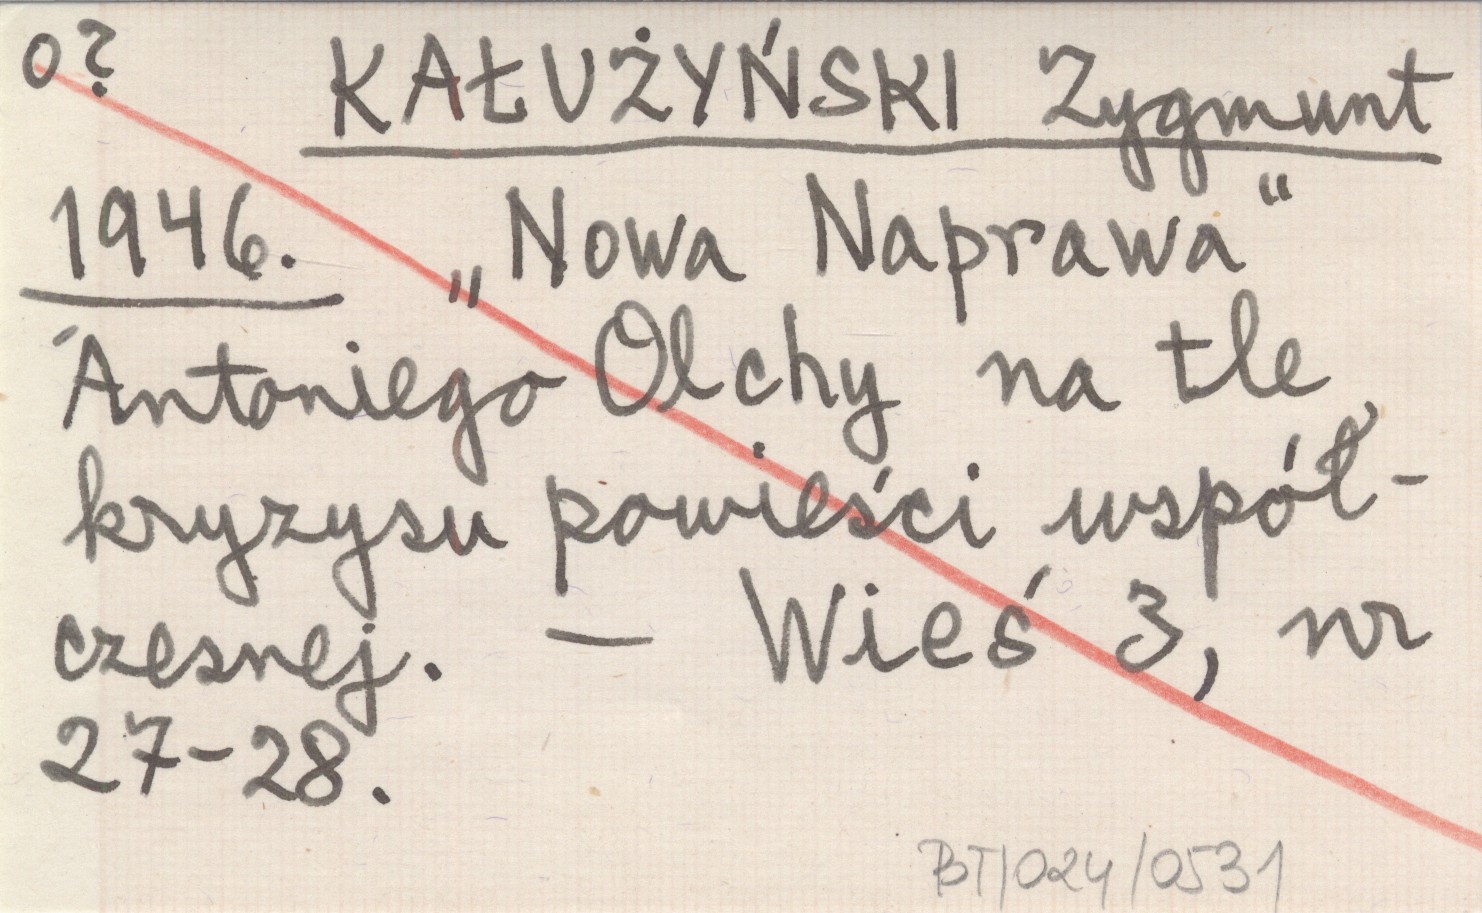 o? KAŁUŻYŃSKI Zygmunt
1946. „Nowa Naprawa“
Antoniego Olchy na tle
kryzysu powieści współ-
czesnej. — Wieś 3, nr
27-28.
BT/024/0531